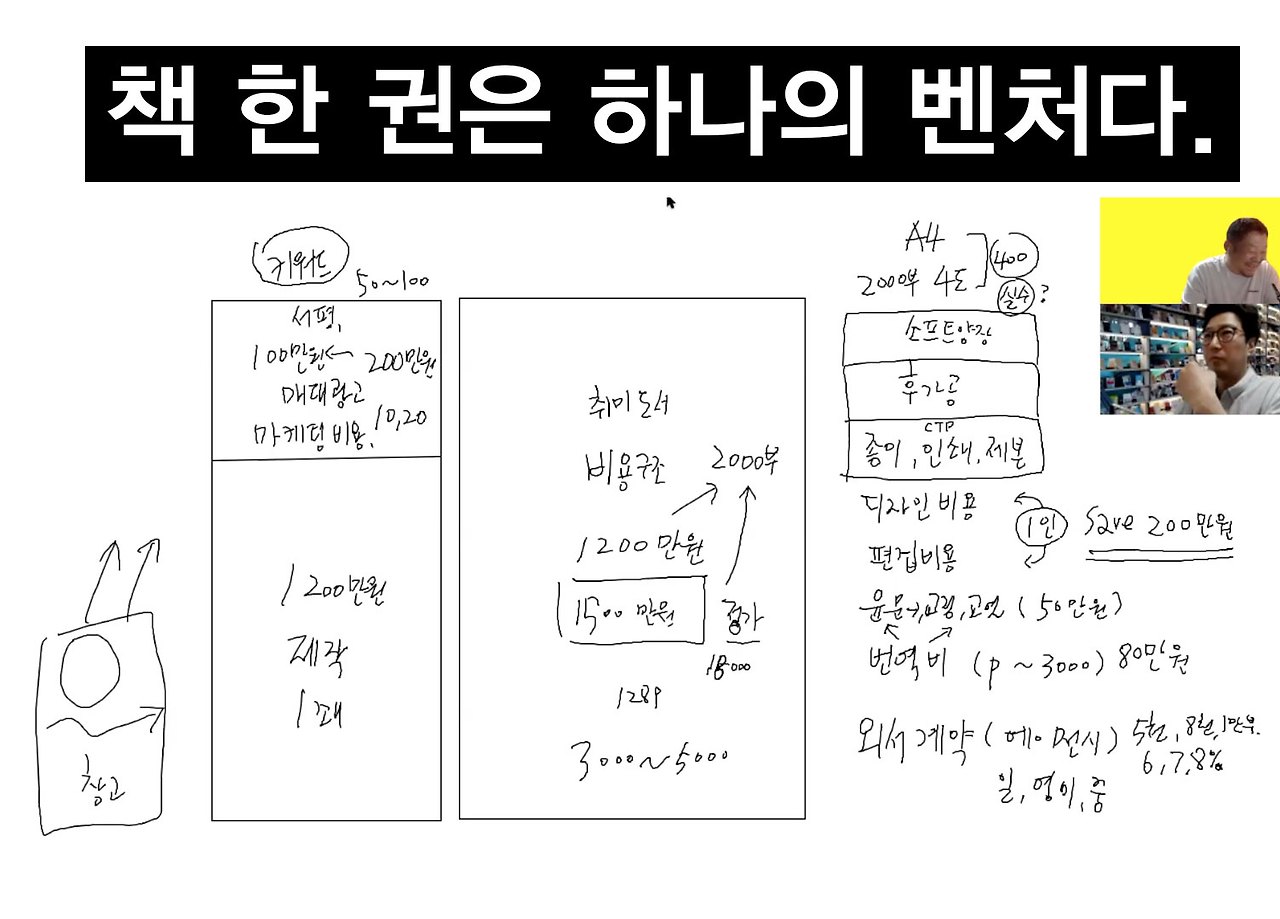 책 한 권은 하나의 벤처다.
키워드
50~100
서평,
100만원← 200만원
매대광고
마케팅 비용, 10,20
1200만원
제작
1쇄
창고
취미 도서
비용구조 2000부
1200만원
1500만원 정가
18000
128P
3000~5000
A4
2000부 4도 400
실수?
소프트양장
후가공
CTP
종이, 인쇄, 제본
디자인 비용
1인 Save 200만원
편집비용
윤문, 교정, 교열 (50만원)
번역비 (P ~ 3000) 80만원
외서 계약 (에이전시) 5천, 8천, 1만부.
6,7,8%
일, 영미, 중